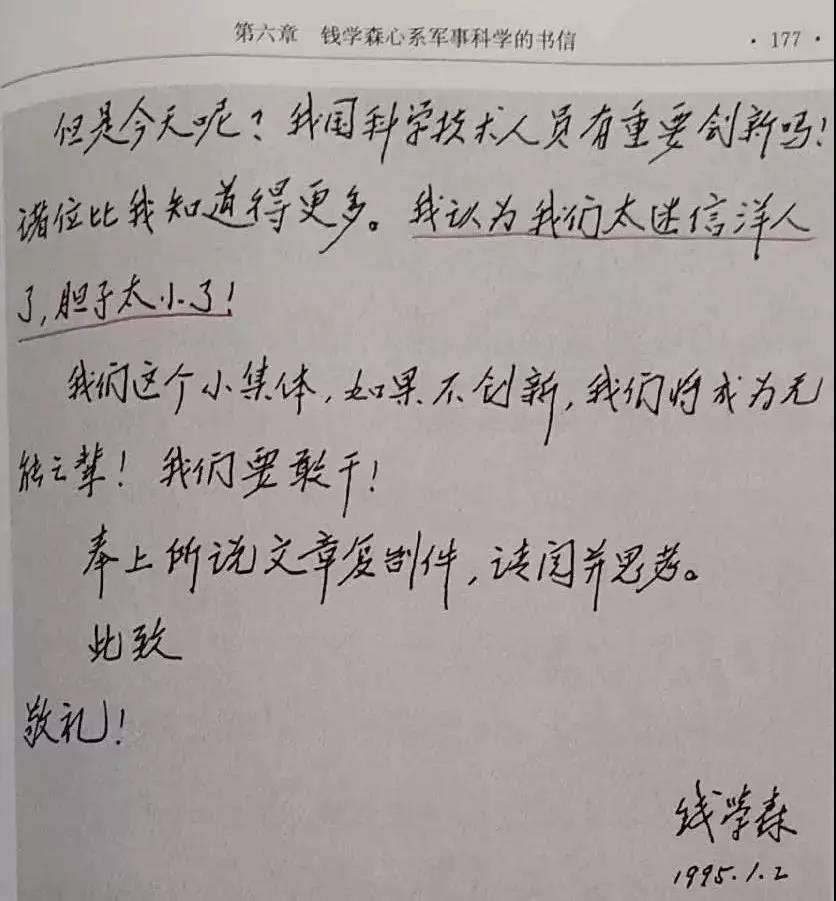 第六章 钱学森心系军事科学的书信 ·177·
但是今天呢?我国科学技术人员有重要创新吗!
诸位比我知道得更多。我认为我们太迷信洋人
了,胆子太小了!
我们这个小集体,如果不创新,我们将成为无
能之辈!我们要敢干!
奉上所说文章复制件,请阅并思考。
此致
敬礼!
钱学森
1995.1.2